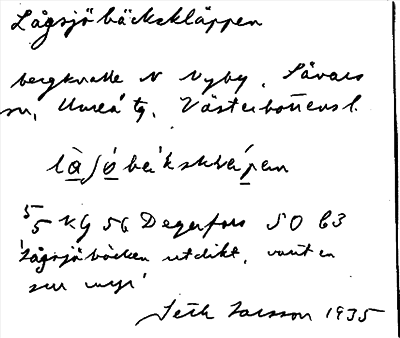 Lågsjöbäckskläppen
bergknalle N Nyby, Sävars
sn, Umeå tg, Västerbottens l.
5/5 KG 56 Degerfors SO C3
'Lågsjöbäcken utdikt, varit en
sur myr'
Seth Larsson 1935